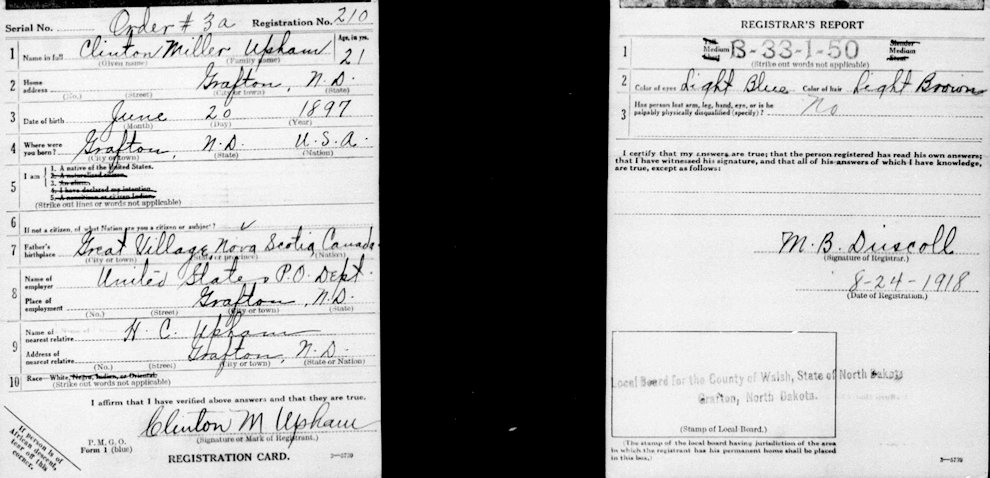 Serial No. Order # 3a Registration No. 210
1 Name in full Clinton Miller Upham Age, in yrs. 21
(Given name) (Family name)
2 Home address Grafton, N.D.
(No.) (Street) (City or town) (State)
3 Date of birth June 20 1897
(Month) (Day) (Year)
4 Where were you born? Grafton, N.D. U.S.A
(City or town) (State) (Nation)
5 I am
1. A native of the United States.
2. A naturalized citizen.
3. An alien.
4. I have declared my intention.
5. A noncitizen or citizen Indian.
(Strike out lines or words not applicable)
6 If not a citizen, of what Nation are you a citizen or subject?
7 Father's birthplace Great Village, Nova Scotia Canada
(City or town) (State or province) (Nation)
8 Name of employer United States P.O. Dept.
Place of employment Grafton, N.D.
(No.) (Street) (City or town) (State)
9 Name of nearest relative H. C. Upham
Address of nearest relative Grafton, N.D.
(No.) (Street) (City or town) (State or Nation)
10 Race—White, Negro, Indian, or Oriental.
(Strike out words not applicable)
I affirm that I have verified above answers and that they are true.
Clinton M Upham
(Signature or Mark of Registrant.)
P.M.G.O.
Form 1 (blue)
REGISTRATION CARD.
3—5739
If person is of
African descent,
tear off this
corner.
REGISTRAR'S REPORT
1 Tall Medium Short B-33-1-50 Slender Medium Stout
(Strike out words not applicable)
2 Color of eyes Light Blue Color of hair Light Brown
3 Has person lost arm, leg, hand, eye, or is he
palpably physically disqualified (specify)? No
I certify that my answers are true; that the person registered has read his own answers;
that I have witnessed his signature, and that all of his answers of which I have knowledge,
are true, except as follows:
M. B. Driscoll
(Signature of Registrar.)
8-24-1918
(Date of Registration.)
Local Board for the County of Walsh, State of North Dakota
Grafton, North Dakota.
(Stamp of Local Board.)
(The stamp of the local board having jurisdiction of the area
in which the registrant has his permanent home shall be placed
in this box.)
3—5739